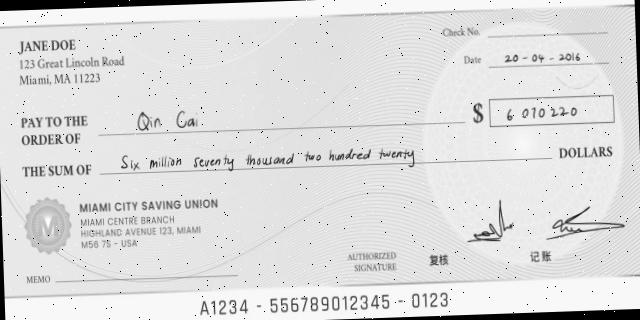 JANE DOE
123 Great Lincoln Road
Miami, MA 11223
Check No.
Date 20-04-2016
PAY TO THE
ORDER OF Qin Cai
$ 6 010 220
THE SUM OF Six million seventy thousand two hundred twenty DOLLARS
MIAMI CITY SAVING UNION
MIAMI CENTRE BRANCH
HIGHLAND AVENUE 123, MIAMI
M56 75 - USA
M
MEMO
AUTHORIZED
SIGNATURE
复核
记账
A1234 - 556789012345 - 0123